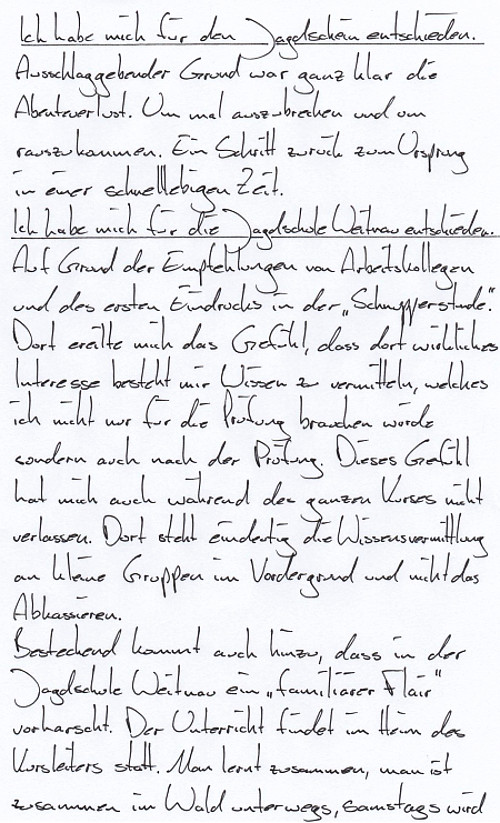 Ich habe mich für den Jagdschein entschieden.
Ausschlaggebender Grund war ganz klar die
Abenteuerlust. Um mal auszubrechen und um
rauszukommen. Ein Schritt zurück zum Ursprung
in einer schnelllebigen Zeit.
Ich habe mich für die Jagdschule Weitnau entschieden.
Auf Grund der Empfehlungen von Arbeitskollegen
und des ersten Eindrucks in der „Schnupperstunde".
Dort ereilte mich das Gefühl, dass dort wirkliches
Interesse besteht mir Wissen zu vermitteln, welches
ich nicht nur für die Prüfung brauchen würde
sondern auch nach der Prüfung. Dieses Gefühl
hat mich auch während des ganzen Kurses nicht
verlassen. Dort steht eindeutig die Wissensvermittlung
an kleine Gruppen im Vordergrund und nicht das
Abkassieren.
Bestechend kommt auch hinzu, dass in der
Jagdschule Weitnau ein „familiärer Flair"
vorharscht. Der Unterricht findet im Heim des
Kursleiters statt. Man lernt zusammen, man ist
zusammen im Wald unterwegs, samstags wird